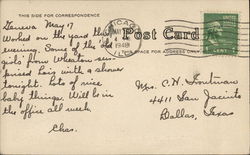 THIS SIDE FOR CORRESPONDENCE
Geneva May 17
Worked on the yard this
evening. Some of the "old
girls" from Wheaton sur-
prised Lois with a shower
tonight. Lots of nice
baby things. Will be in
the office all week.
Chas.
CHICAGO
MAY
1948
ILL.
Post Card
PLACE FOR ADDRESS ONLY
1 CENT
Mrs. C. H. Troutman
4411 San Jacinto
Dallas, Texas